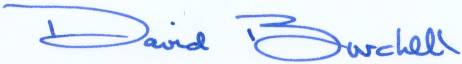 David Burchell